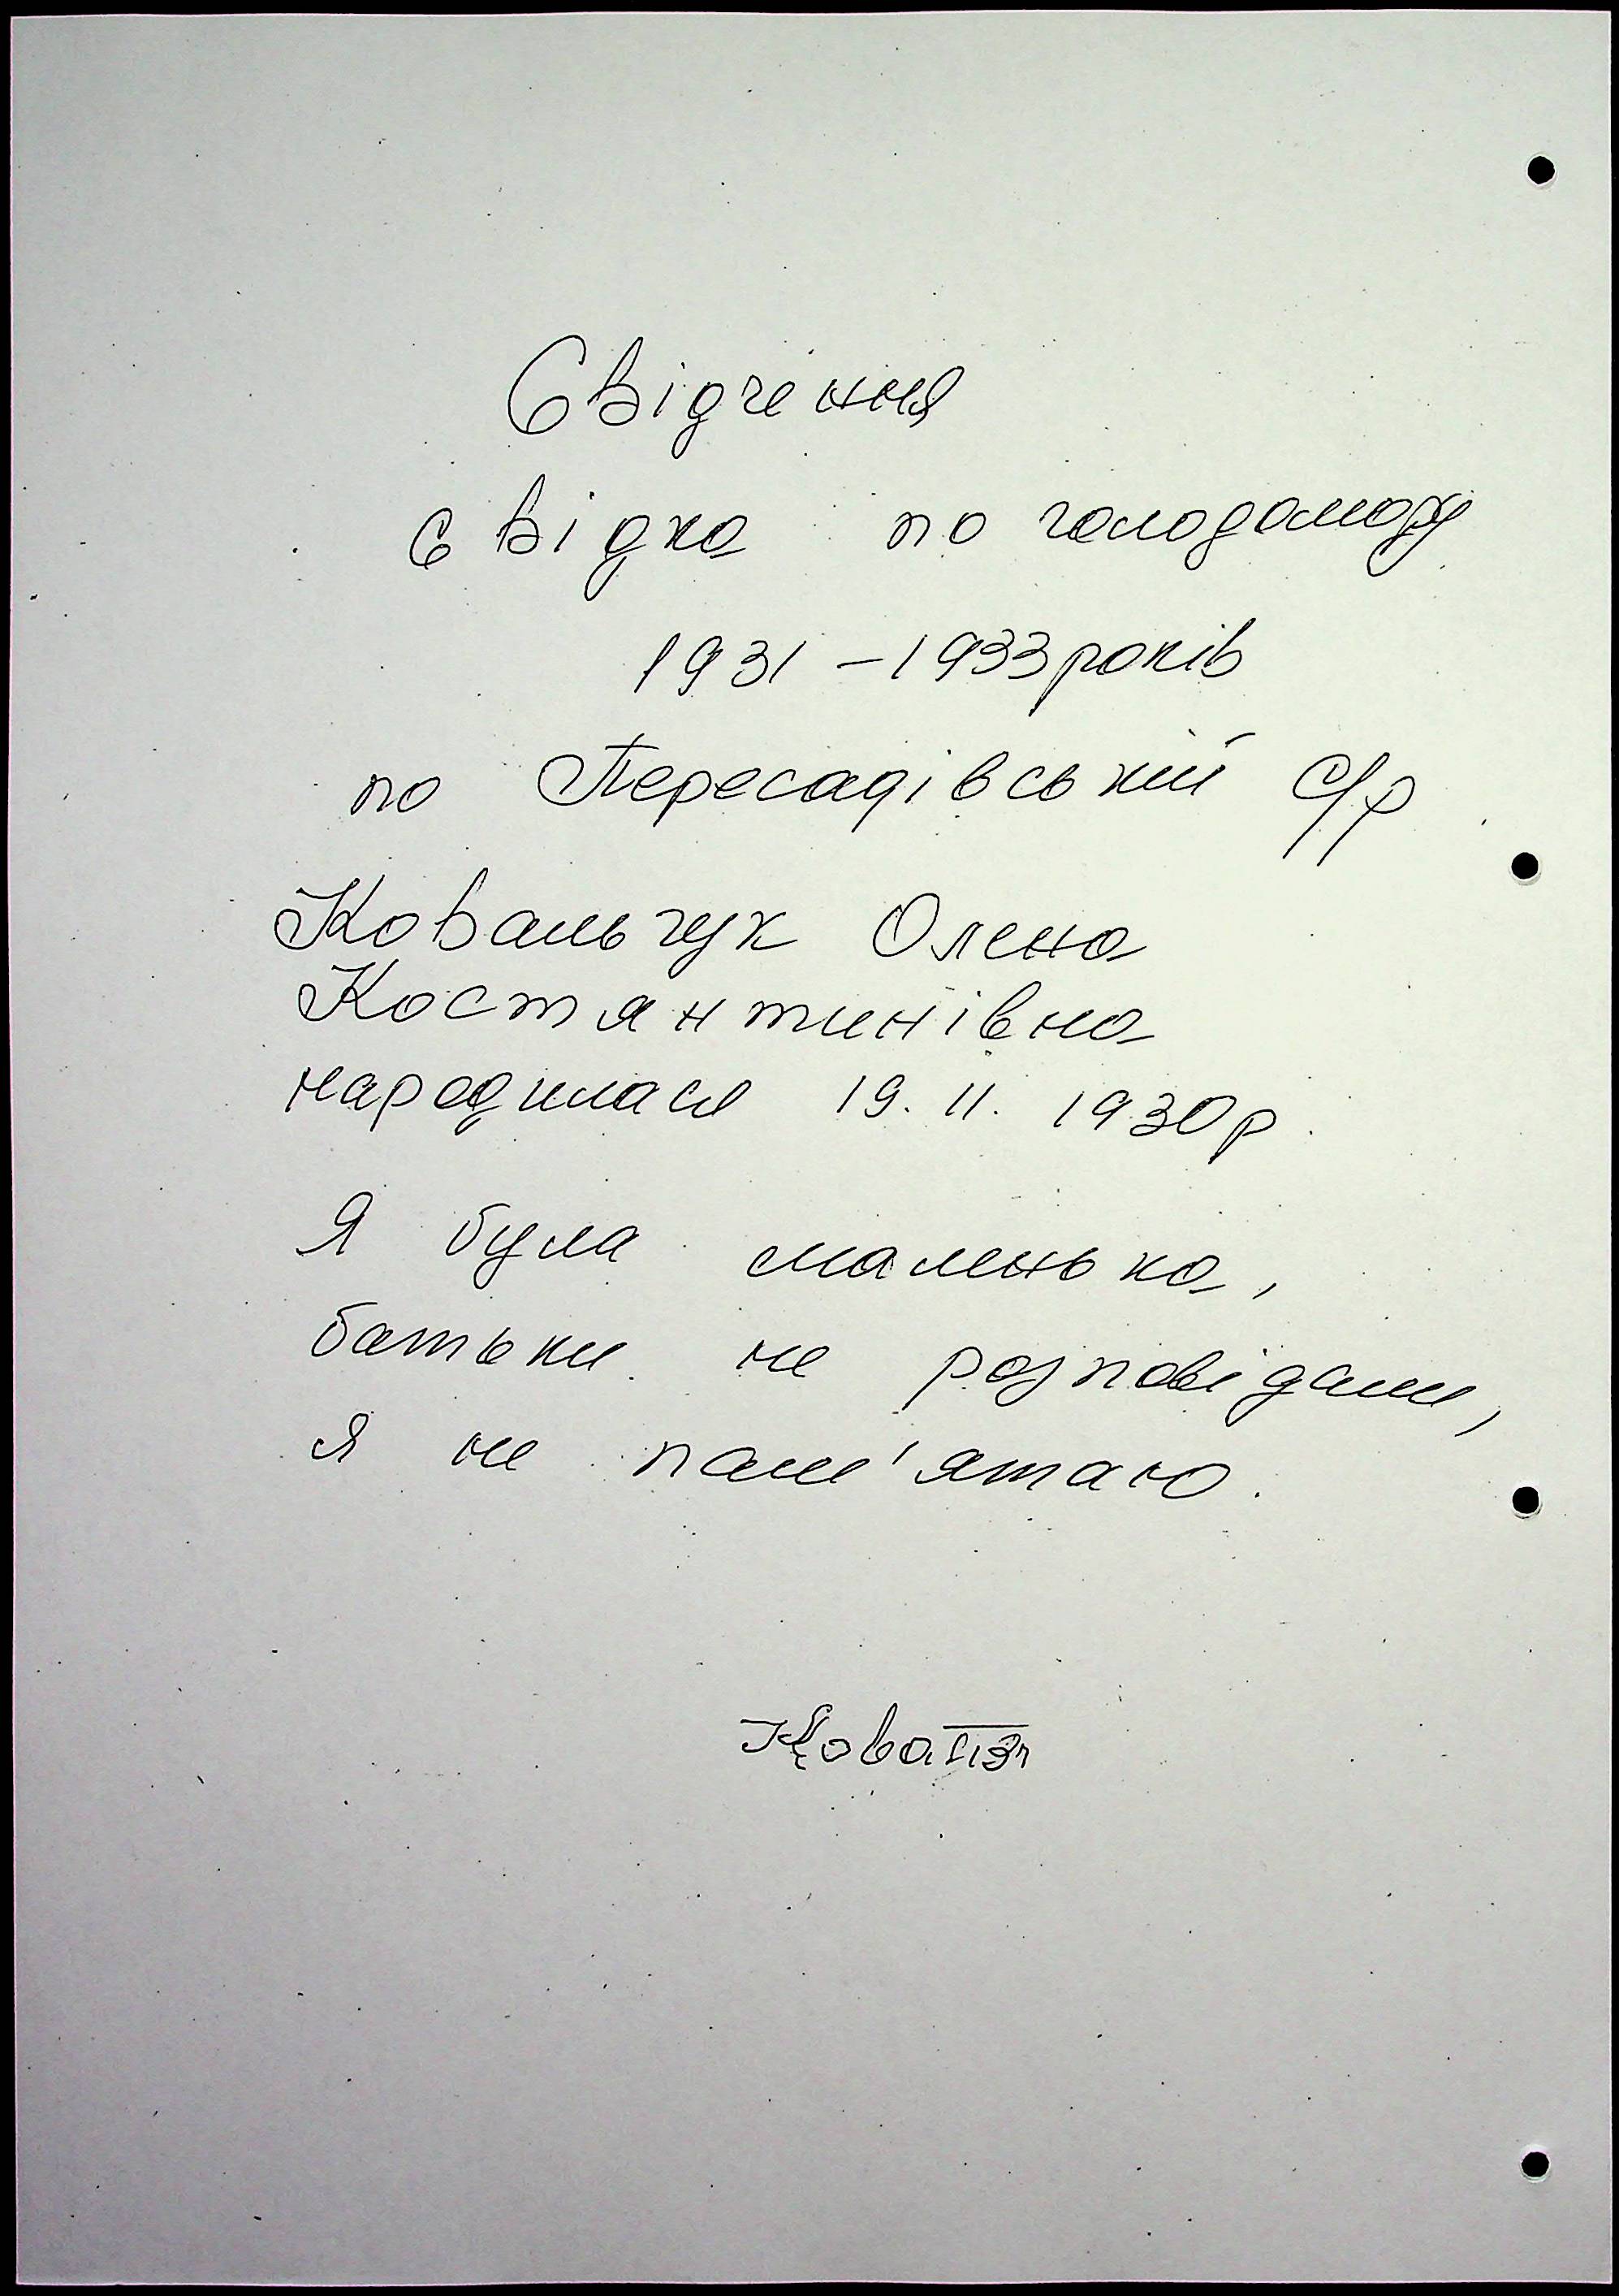 Свідчення
свідка по голодомору
1931 – 1933 років
по Пересадівській с/р
Ковальчук Олена
Костянтинівна
народилася 19. 11. 1930 р.
Я була маленька,
батьки не розповідали,
я не пам'ятаю.